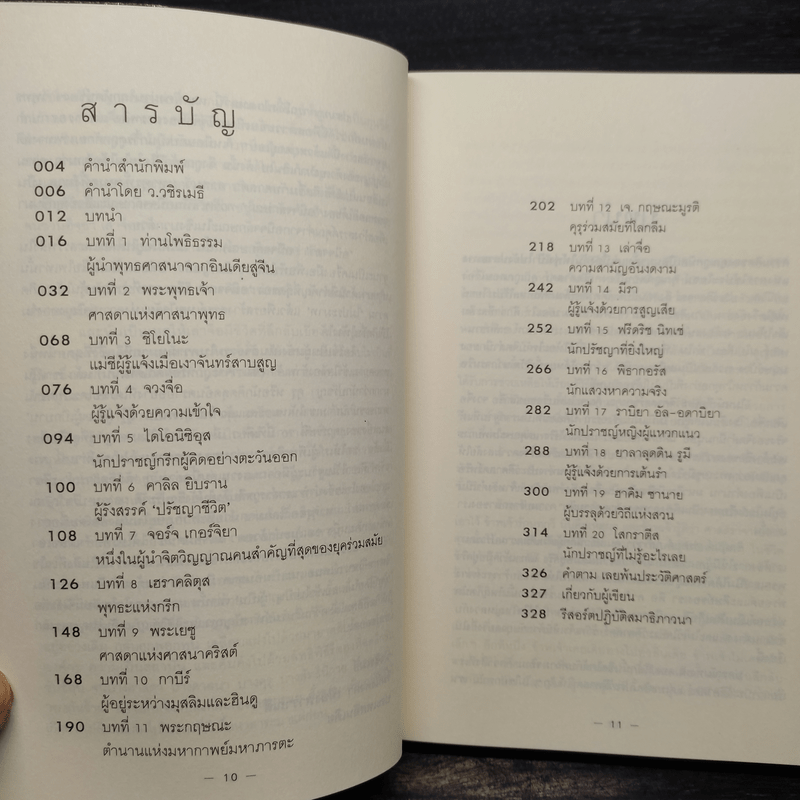 สารบัญ
004 คำนำสำนักพิมพ์
006 คำนำโดย ว.วชิรเมธี
012 บทนำ
016 บทที่ 1 ท่านโพธิธรรม
ผู้นำพุทธศาสนาจากอินเดียสู่จีน
032 บทที่ 2 พระพุทธเจ้า
ศาสดาแห่งศาสนาพุทธ
068 บทที่ 3 ชิโยโนะ
แม่ชีผู้รู้แจ้งเมื่อเงาจันทร์สาบสูญ
076 บทที่ 4 จวงจื่อ
ผู้รู้แจ้งด้วยความเข้าใจ
094 บทที่ 5 ไดโอนิซิอุส
นักปราชญ์กรีกผู้คิดอย่างตะวันออก
100 บทที่ 6 คาลิล ยิบราน
ผู้รังสรรค์ ‘ปรัชญาชีวิต’
108 บทที่ 7 จอร์จ เกอร์จิยา
หนึ่งในผู้นำจิตวิญญาณคนสำคัญที่สุดของยุคร่วมสมัย
126 บทที่ 8 เฮราคลิตุส
พุทธะแห่งกรีก
148 บทที่ 9 พระเยซู
ศาสดาแห่งศาสนาคริสต์
168 บทที่ 10 กาบีร์
ผู้อยู่ระหว่างมุสลิมและฮินดู
190 บทที่ 11 พระกฤษณะ
ตำนานแห่งมหากาพย์มหาภารตะ
— 10 —
202 บทที่ 12 เจ. กฤษณะมูรติ
คุรุร่วมสมัยที่โลกลืม
218 บทที่ 13 เล่าจื่อ
ความสามัญอันงดงาม
242 บทที่ 14 มีรา
ผู้รู้แจ้งด้วยการสูญเสีย
252 บทที่ 15 ฟรีดริช นิทเช่
นักปรัชญาที่ยิ่งใหญ่
266 บทที่ 16 พิธากอรัส
นักแสวงหาความจริง
282 บทที่ 17 ราบิยา อัล-อดาบิยา
นักปราชญ์หญิงผู้แหวกแนว
288 บทที่ 18 ยาลาลุดดิน รูมี
ผู้รู้แจ้งด้วยการเต้นรำ
300 บทที่ 19 ฮาคิม ซานาย
ผู้บรรลุด้วยวิถีแห่งสวน
314 บทที่ 20 โสกราตีส
นักปราชญ์ที่ไม่รู้อะไรเลย
326 คำตาม เลยพ้นประวัติศาสตร์
327 เกี่ยวกับผู้เขียน
328 รีสอร์ตปฏิบัติสมาธิภาวนา
— 11 —